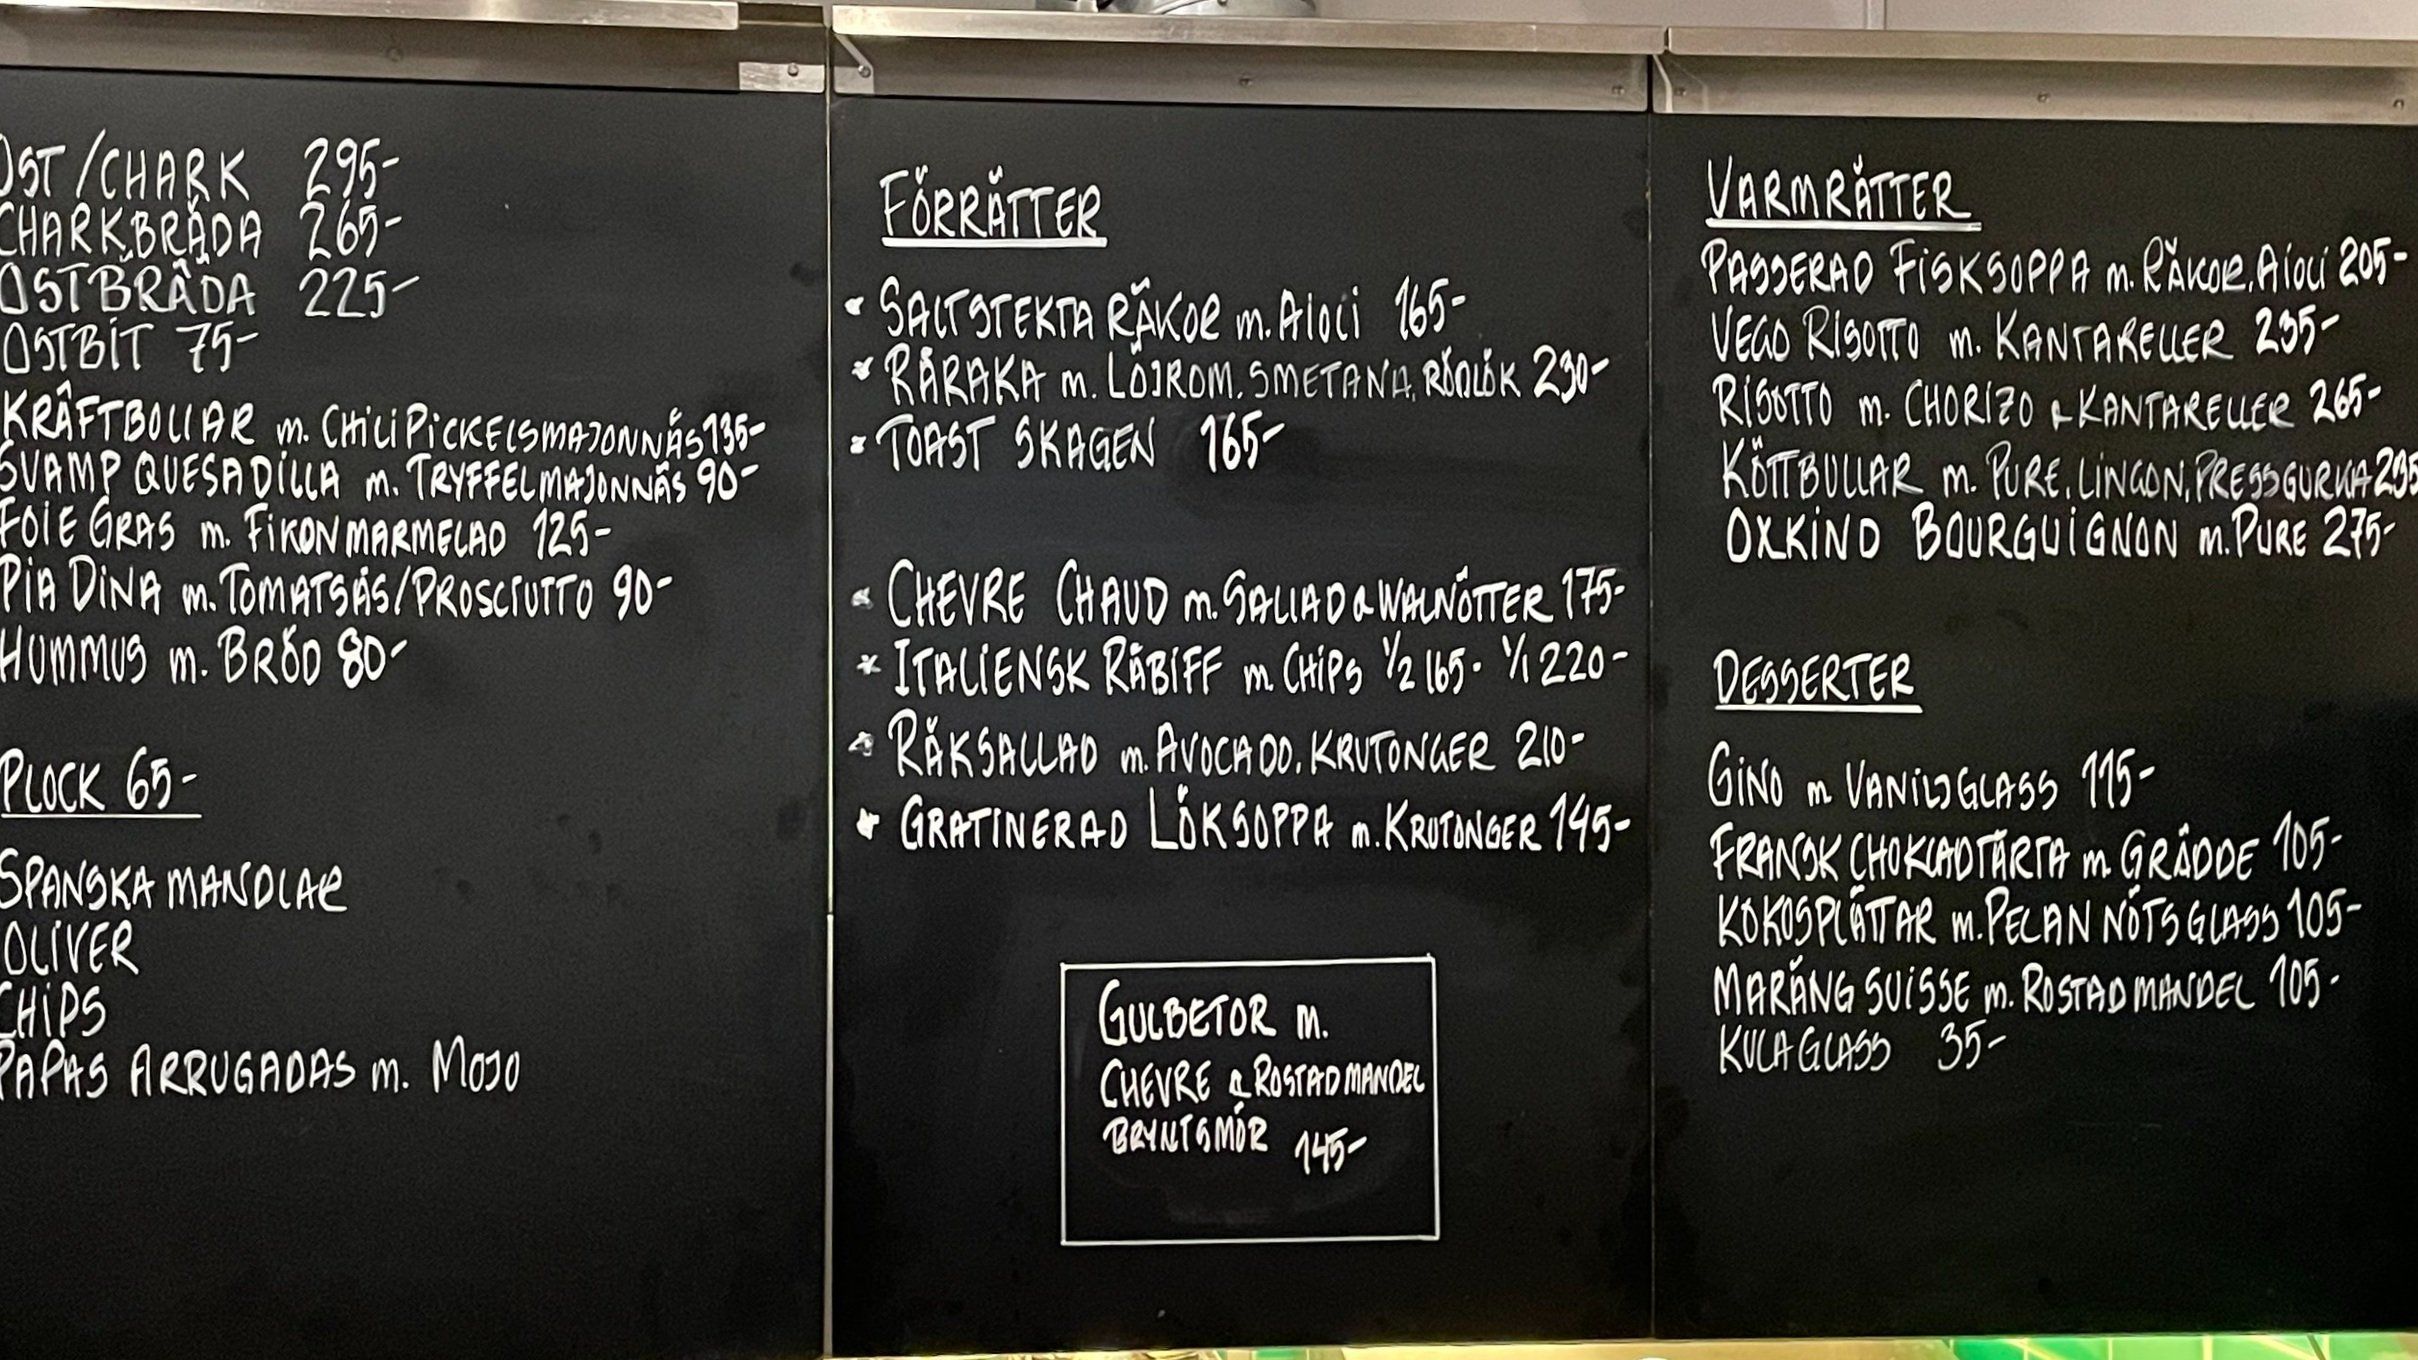 OST/CHARK 295-
CHARKBRÄDA 265-
OSTBRÄDA 225-
OSTBIT 75-
KRÄFTBOLLAR m. CHILIPICKELSMAJONNÄS 135-
SVAMP QUESADILLA m. TRYFFELMAJONNÄS 90-
FOIE GRAS m. FIKONMARMELAD 125-
PIA DINA m. TOMATSÅS/PROSCIUTTO 90-
HUMMUS m. BRÖD 80-
PLOCK 65-
SPANSKA MANDLAR
OLIVER
CHIPS
PAPAS ARRUGADAS m. MOJO
FÖRRÄTTER
SALTSTEKTA RÄKOR m. AIOLI 165-
RÅRAKA m. LÖJROM, SMETANA, RÖDLÖK 230-
TOAST SKAGEN 165-
CHEVRE CHAUD m. SALLAD & WALNÖTTER 175-
ITALIENSK RÅBIFF m CHIPS 1/2 165- 1/1 220-
RÄKSALLAD m. AVOCADO, KRUTONGER 210-
GRATINERAD LÖKSOPPA m. KRUTONGER 145-
GULBETOR m.
CHEVRE & ROSTAD MANDEL
BRYNT SMÖR 145-
VARMRÄTTER
PASSERAD FISKSOPPA m. RÄKOR, AIOLI 205-
VEGO RISOTTO m. KANTARELLER 235-
RISOTTO m. CHORIZO & KANTARELLER 265-
KÖTTBULLAR m. PURE, LINGON, PRESSGURKA 235
OXKIND BOURGUIGNON m. PURE 275-
DESSERTER
GINO m VANILJGLASS 115-
FRANSK CHOKLADTÅRTA m. GRÄDDE 105-
KOKOSPLÄTTAR m. PECAN NÖTSGLASS 105-
MARÄNG SUISSE m. ROSTAD MANDEL 105-
KULA GLASS 35-